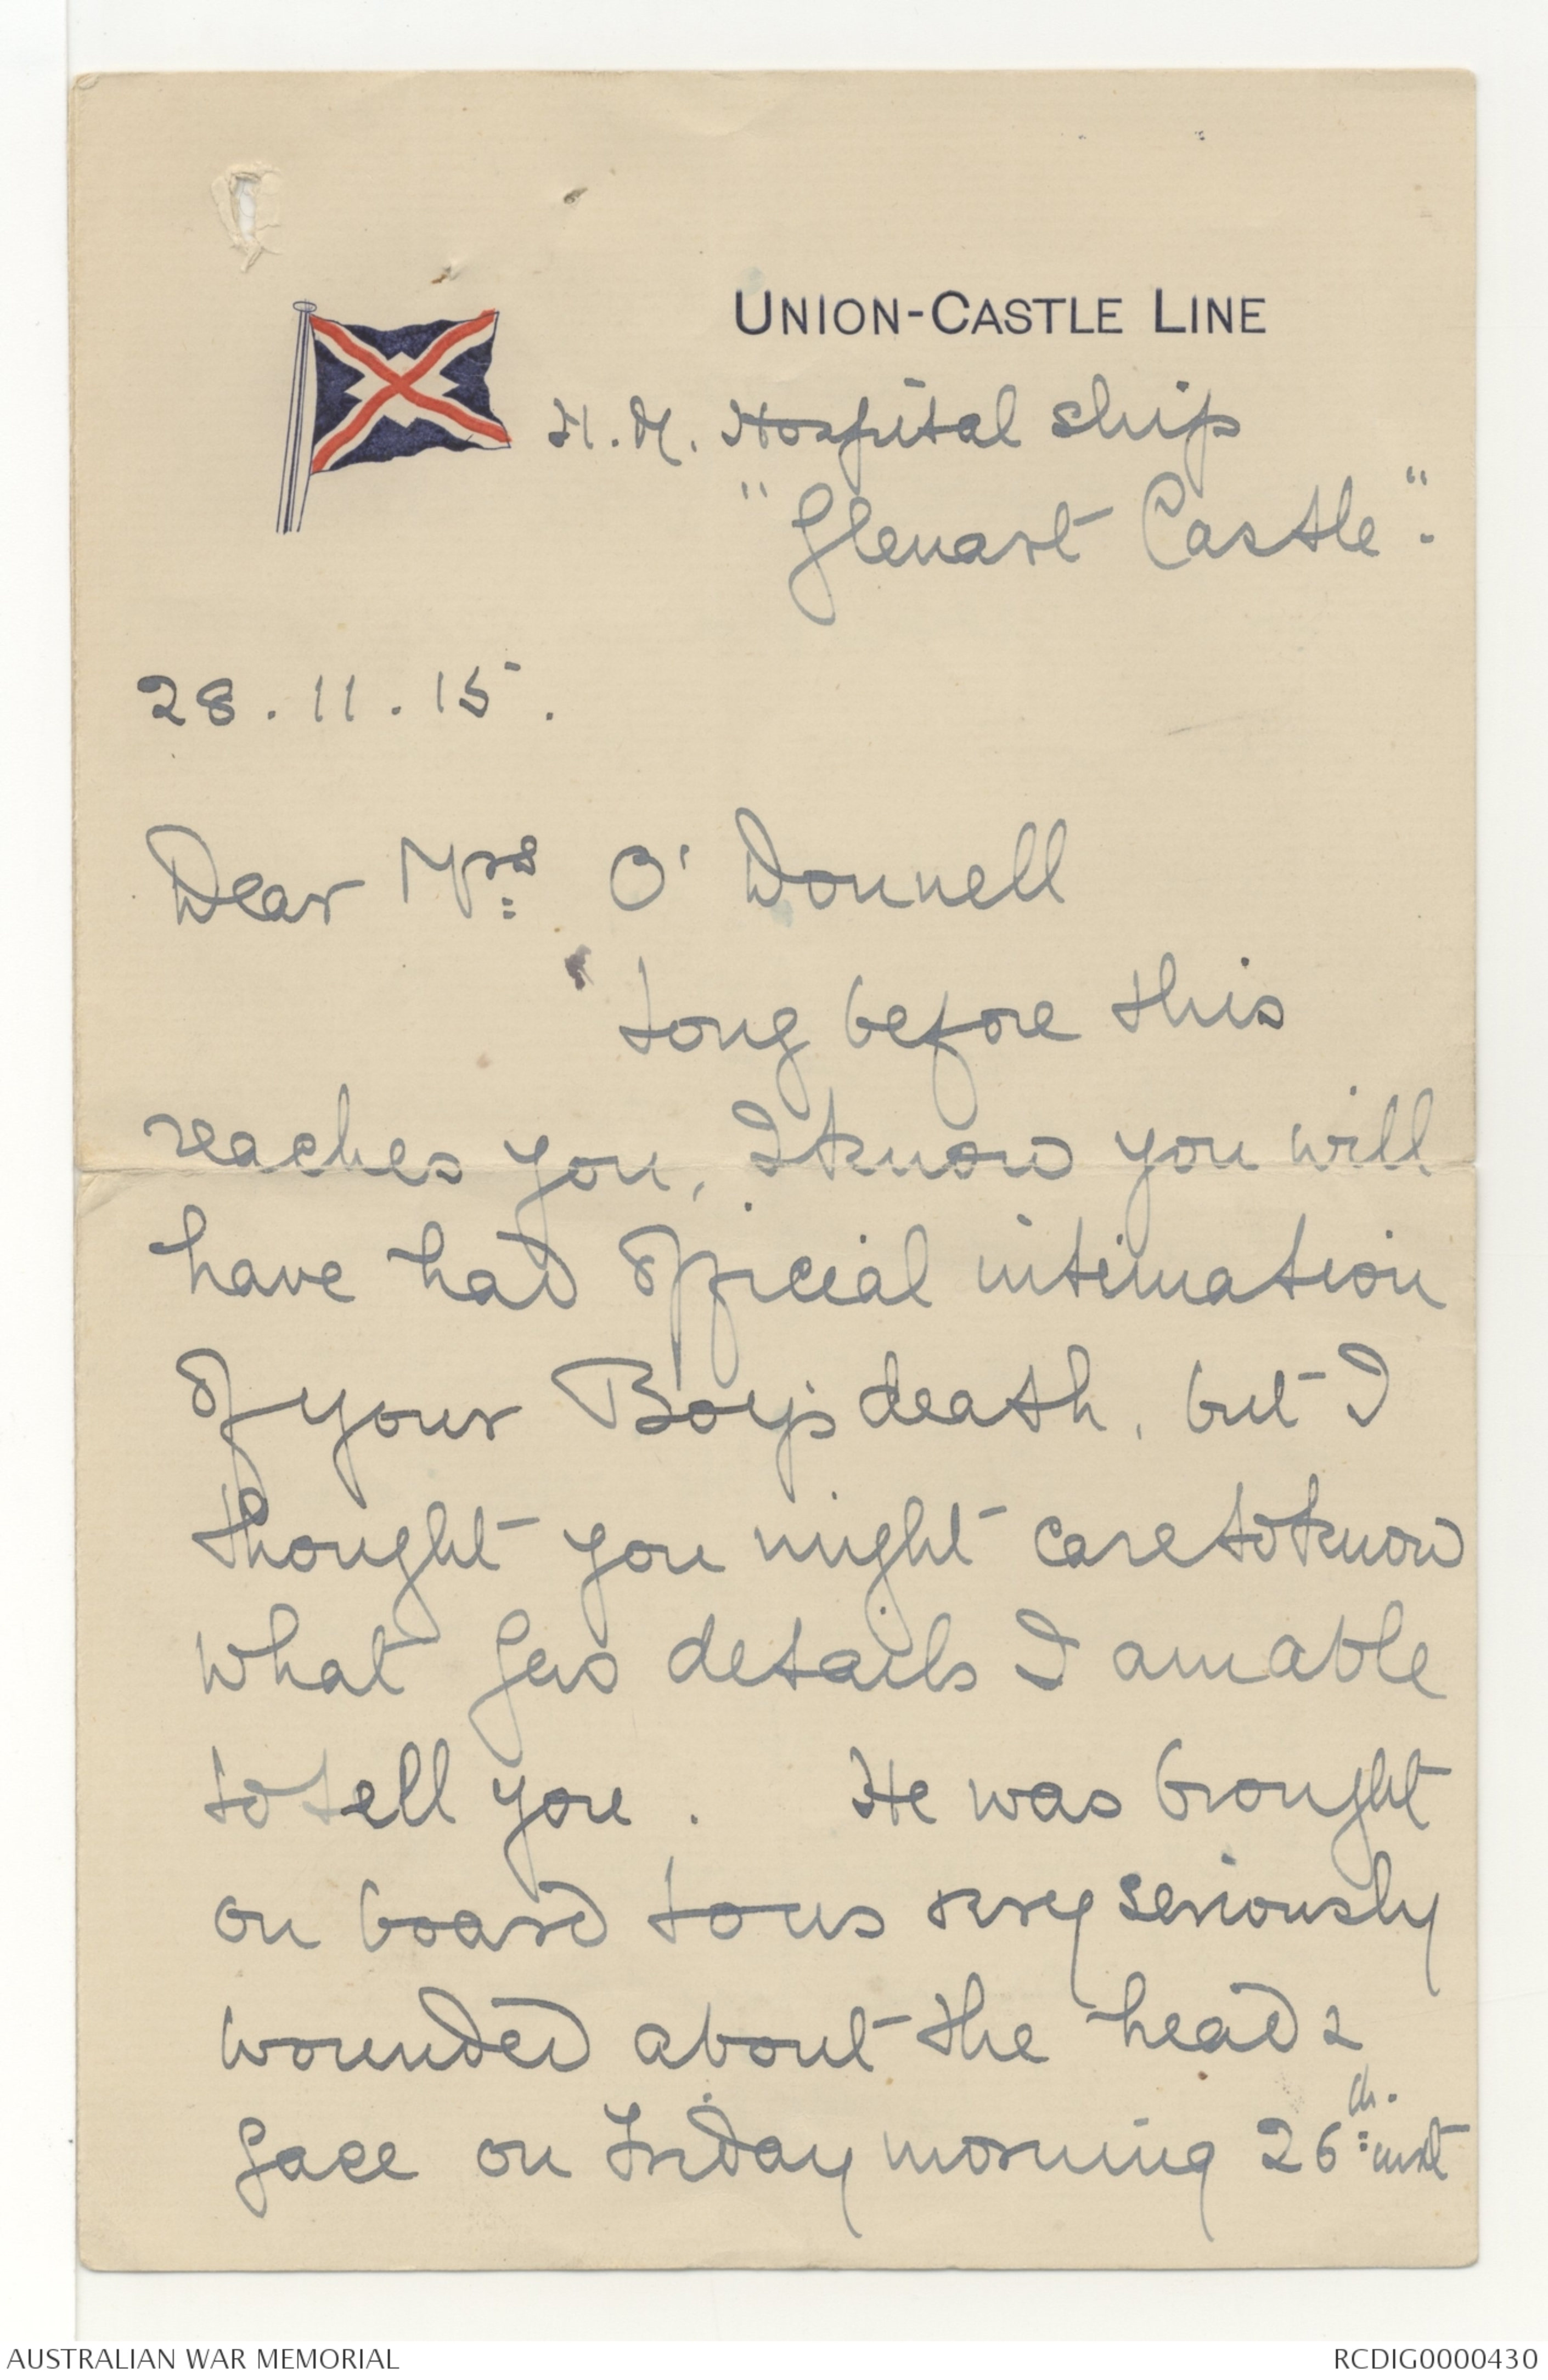 UNION-CASTLE LINE
H.M. Hospital ship
"Glenart Castle".
28.11.15.
Dear Mrs O'Donnell
Long before this
reaches you, I know you will
have had official intimation
of your Boy's death, but I
thought you might care to know
what few details I am able
to tell you. He was brought
on board to us very seriously
wounded about the head &
face on Friday morning 26th. inst
AUSTRALIAN WAR MEMORIAL
RCDIG0000430